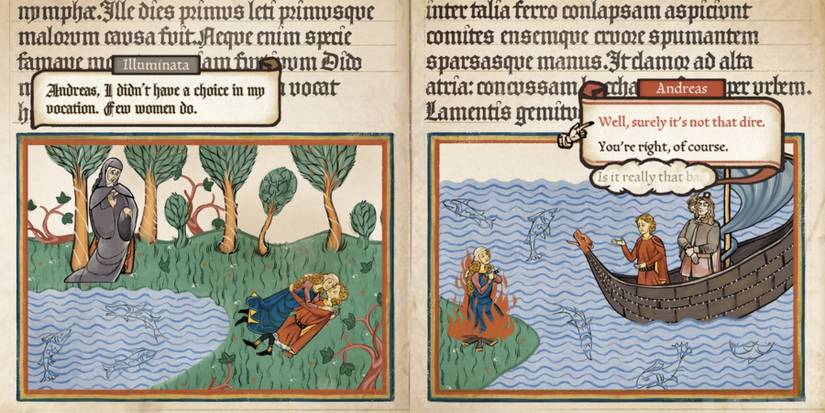 nymphæ. Ille dies primus leti primusque
malorum causa fuit. Neque enim specie
famave Dido
vocat
Illuminata
Andreas, I didn't have a choice in my
vocation. Few women do.
inter talia ferro conlapsam aspiciunt
comites ensemque cruore spumantem
sparsasque manus. It clamor ad alta
atria: concussam per urbem.
Lamentis
Andreas
Well, surely it's not that dire.
You're right, of course.
Is it really that